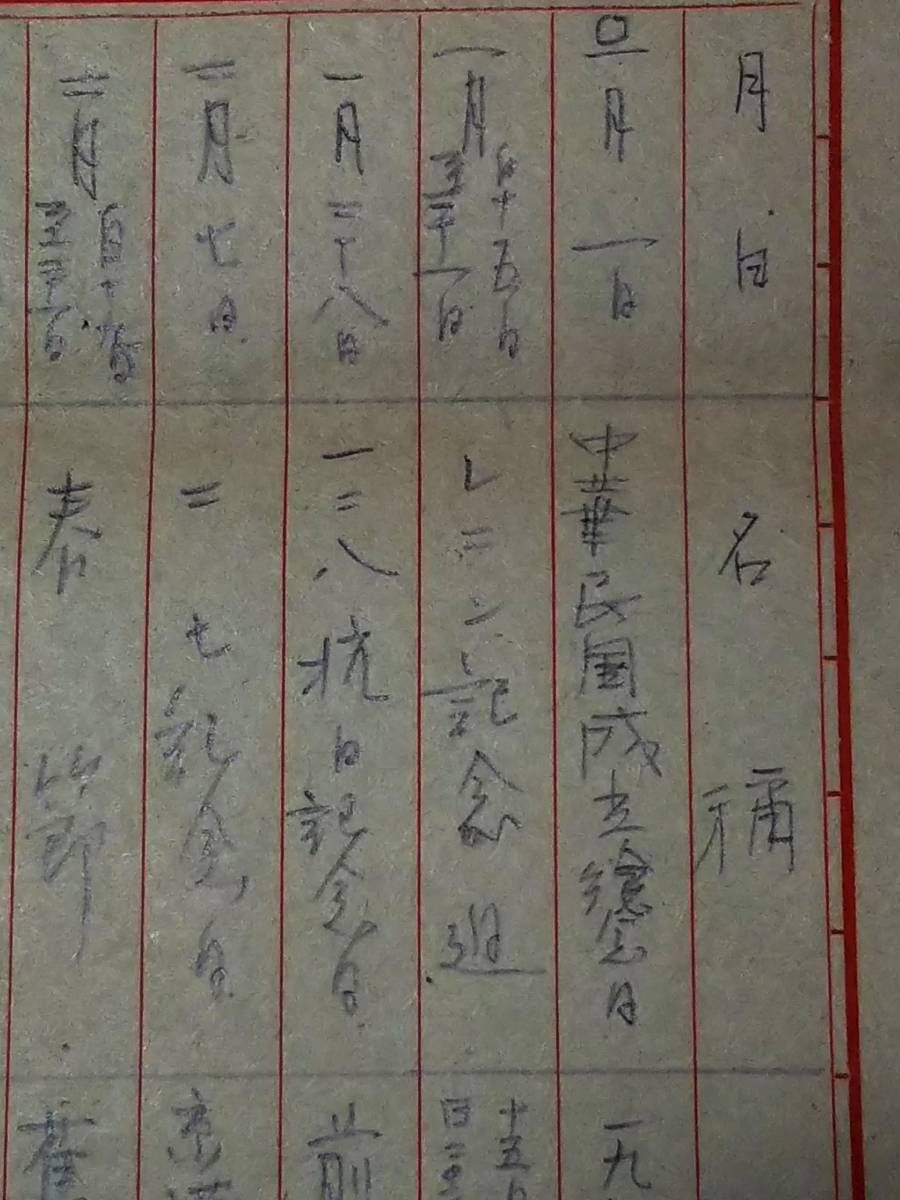 月 日 名 稱
旦月一日 中華民國成立紀念日 一九
一月自十五日至二十一日 記念週 十五日
一月二十八日 一二八抗日記念日 前
二月七日 二七記念日
二月自十九日至 春節